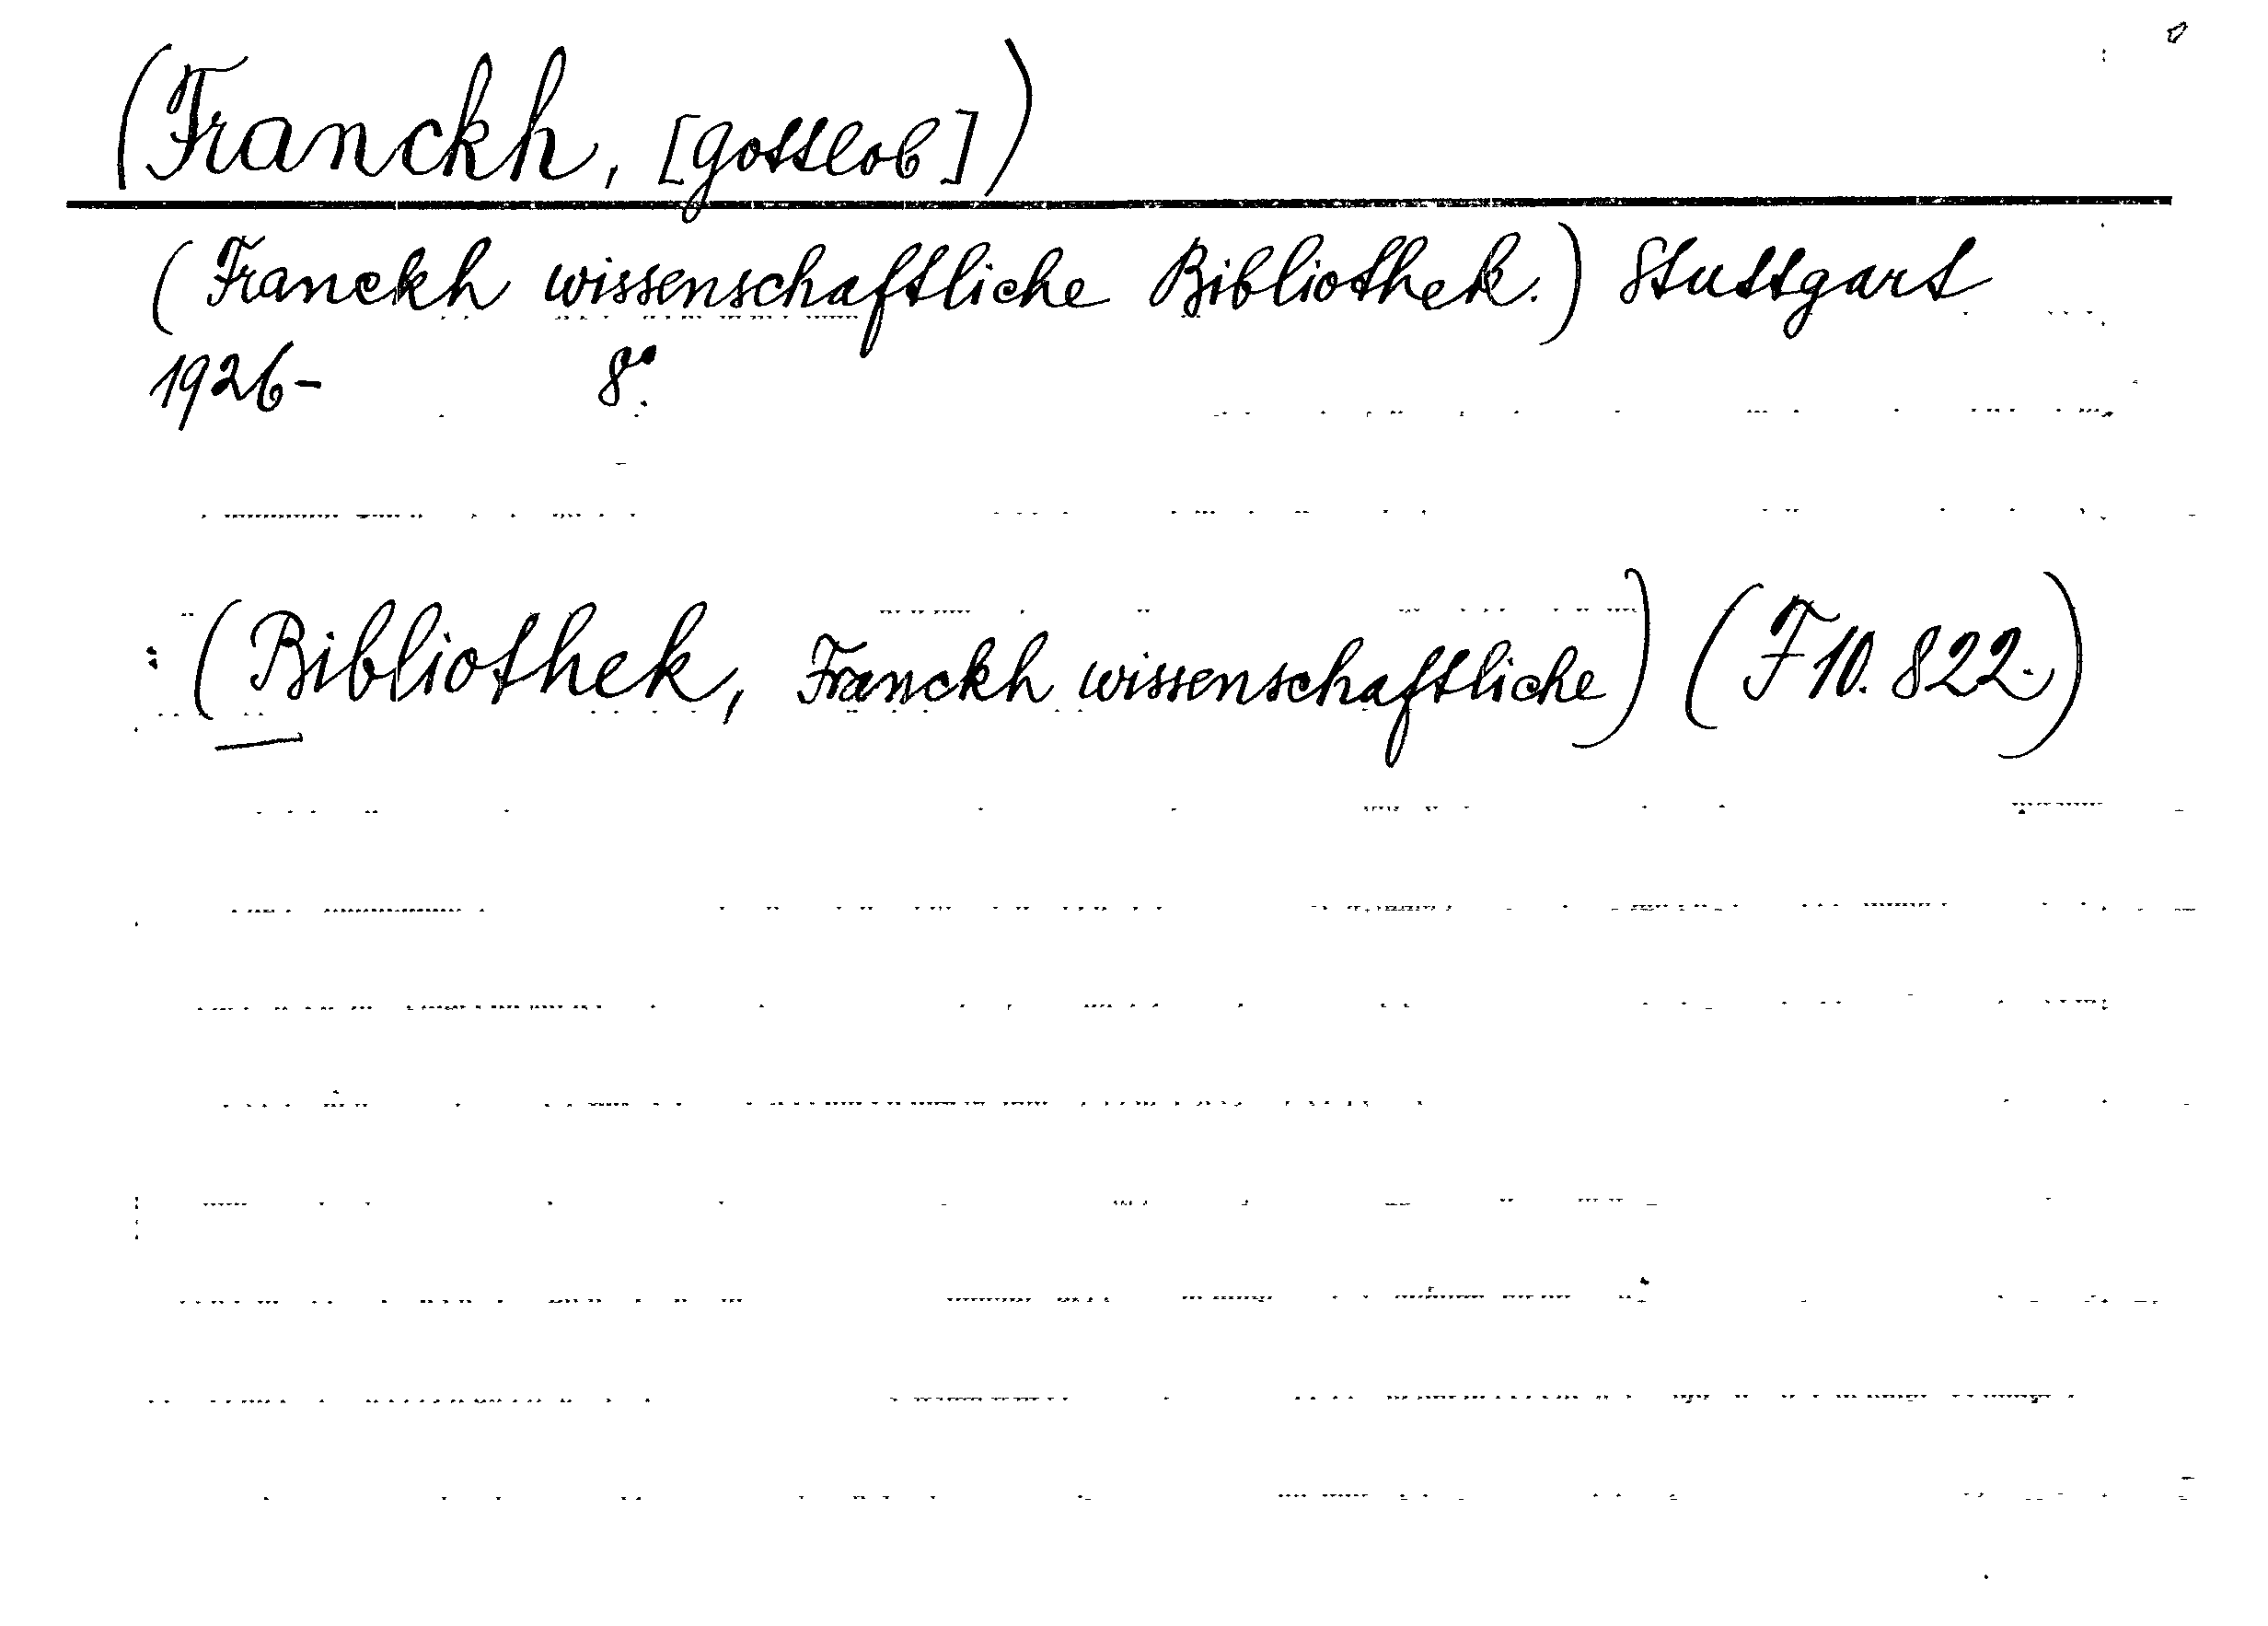 (Franckh, [Gottlob])
(Franckh wissenschaftliche Bibliothek.) Stuttgart
1926- 8°.
(Bibliothek, Franckh wissenschaftliche) (F 10. 822.)